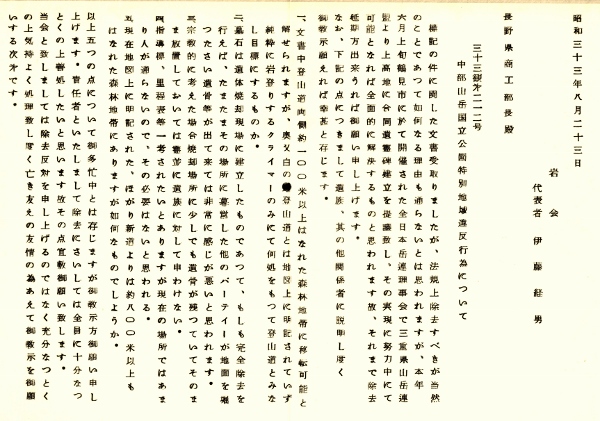 昭和三十三年八月二十三日
岩会
代表者 伊藤経男
長野県商工部長殿
三十三観第二一二号
中部山岳国立公園特別地域違反行為について
標記の件に関した文書受取りましたが、法規上除去すべきが当然
のことであつて如何なる理由も通らないとは思われますが、本年
六月上旬鶴見市に於て開催された全日本岳連理事会で三重県山岳連
盟より上高地に合同遺霊碑建立を提議致し、その実現に努力中にて
可能となれば全面的に解決するものと思われます故、それまで除去
延期方出来うれば御願い申し上げます。
なお、下記の点につきまして遺族、其の他関係者に説明し度く
御教示願えれば幸甚と存じます。
一、文書中登山道両側約一〇〇米以上はなれた森林地帯に移転可能と
解せられますが、奥又白の登山道とは地図上に明記されていず
純粋に岩登りするクライマーのみにて何処をもつて登山道とみな
し目標にするものか。
二、墓石は遺体焼却現場に建立したものであつて、もしも完全除去を
行えば、たまたまその場所に幕営した他のパーテイーが地面を堀
つたさい遺骨等が出て来ては非常に感じが悪いと思われます。
三、宗教的に考えた場合焼却場所に少しでも遺骨が残つていてそのま
ま放置しておいては霊並に遺族に対して申わけない。
四、指導標、里程表等一考されたいとありますが現在の場所ではあま
り人が通らないので、その必要はないと思われる。
五、現在地図上に明記された、ほがり新道よりは約八〇〇米以上も
はなれた森林地帯にありますが如何なものでしようか。
以上五つの点について御多忙中とは存じますが御教示方御願い申し
上げます。責任者といたしまして除去にさいしては全員に十分なつ
とくの上善処したいと思います故その点宜敷御願い致します。
当会と致しましては除去反対を申し上げるのではなく充分なつとく
の上気持よく処理致し度く亡き友えの友情の為あえて御教示を御願
いする次才です。